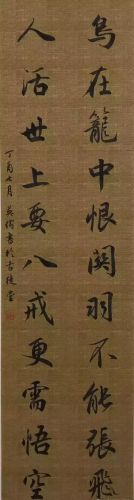 鸟在籠中恨関羽不能張飛
人活世上要八戒更需悟空
丁酉七月英衛書於古陵堂